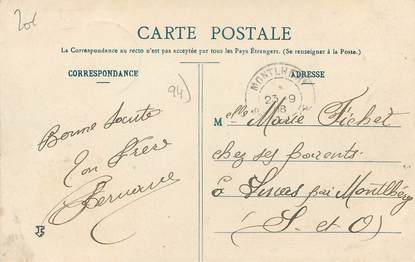 CARTE POSTALE
La Correspondance au recto n'est pas acceptée par tous les Pays Étrangers. (Se renseigner à la Poste.)
CORRESPONDANCE
ADRESSE
MONTLHÉRY
23-9
94)
Bonne Sainte
Ton Frère
Fernand
Melle Marie Fichet
chez ses parents
à Linas par Montlhery
(S. et O)